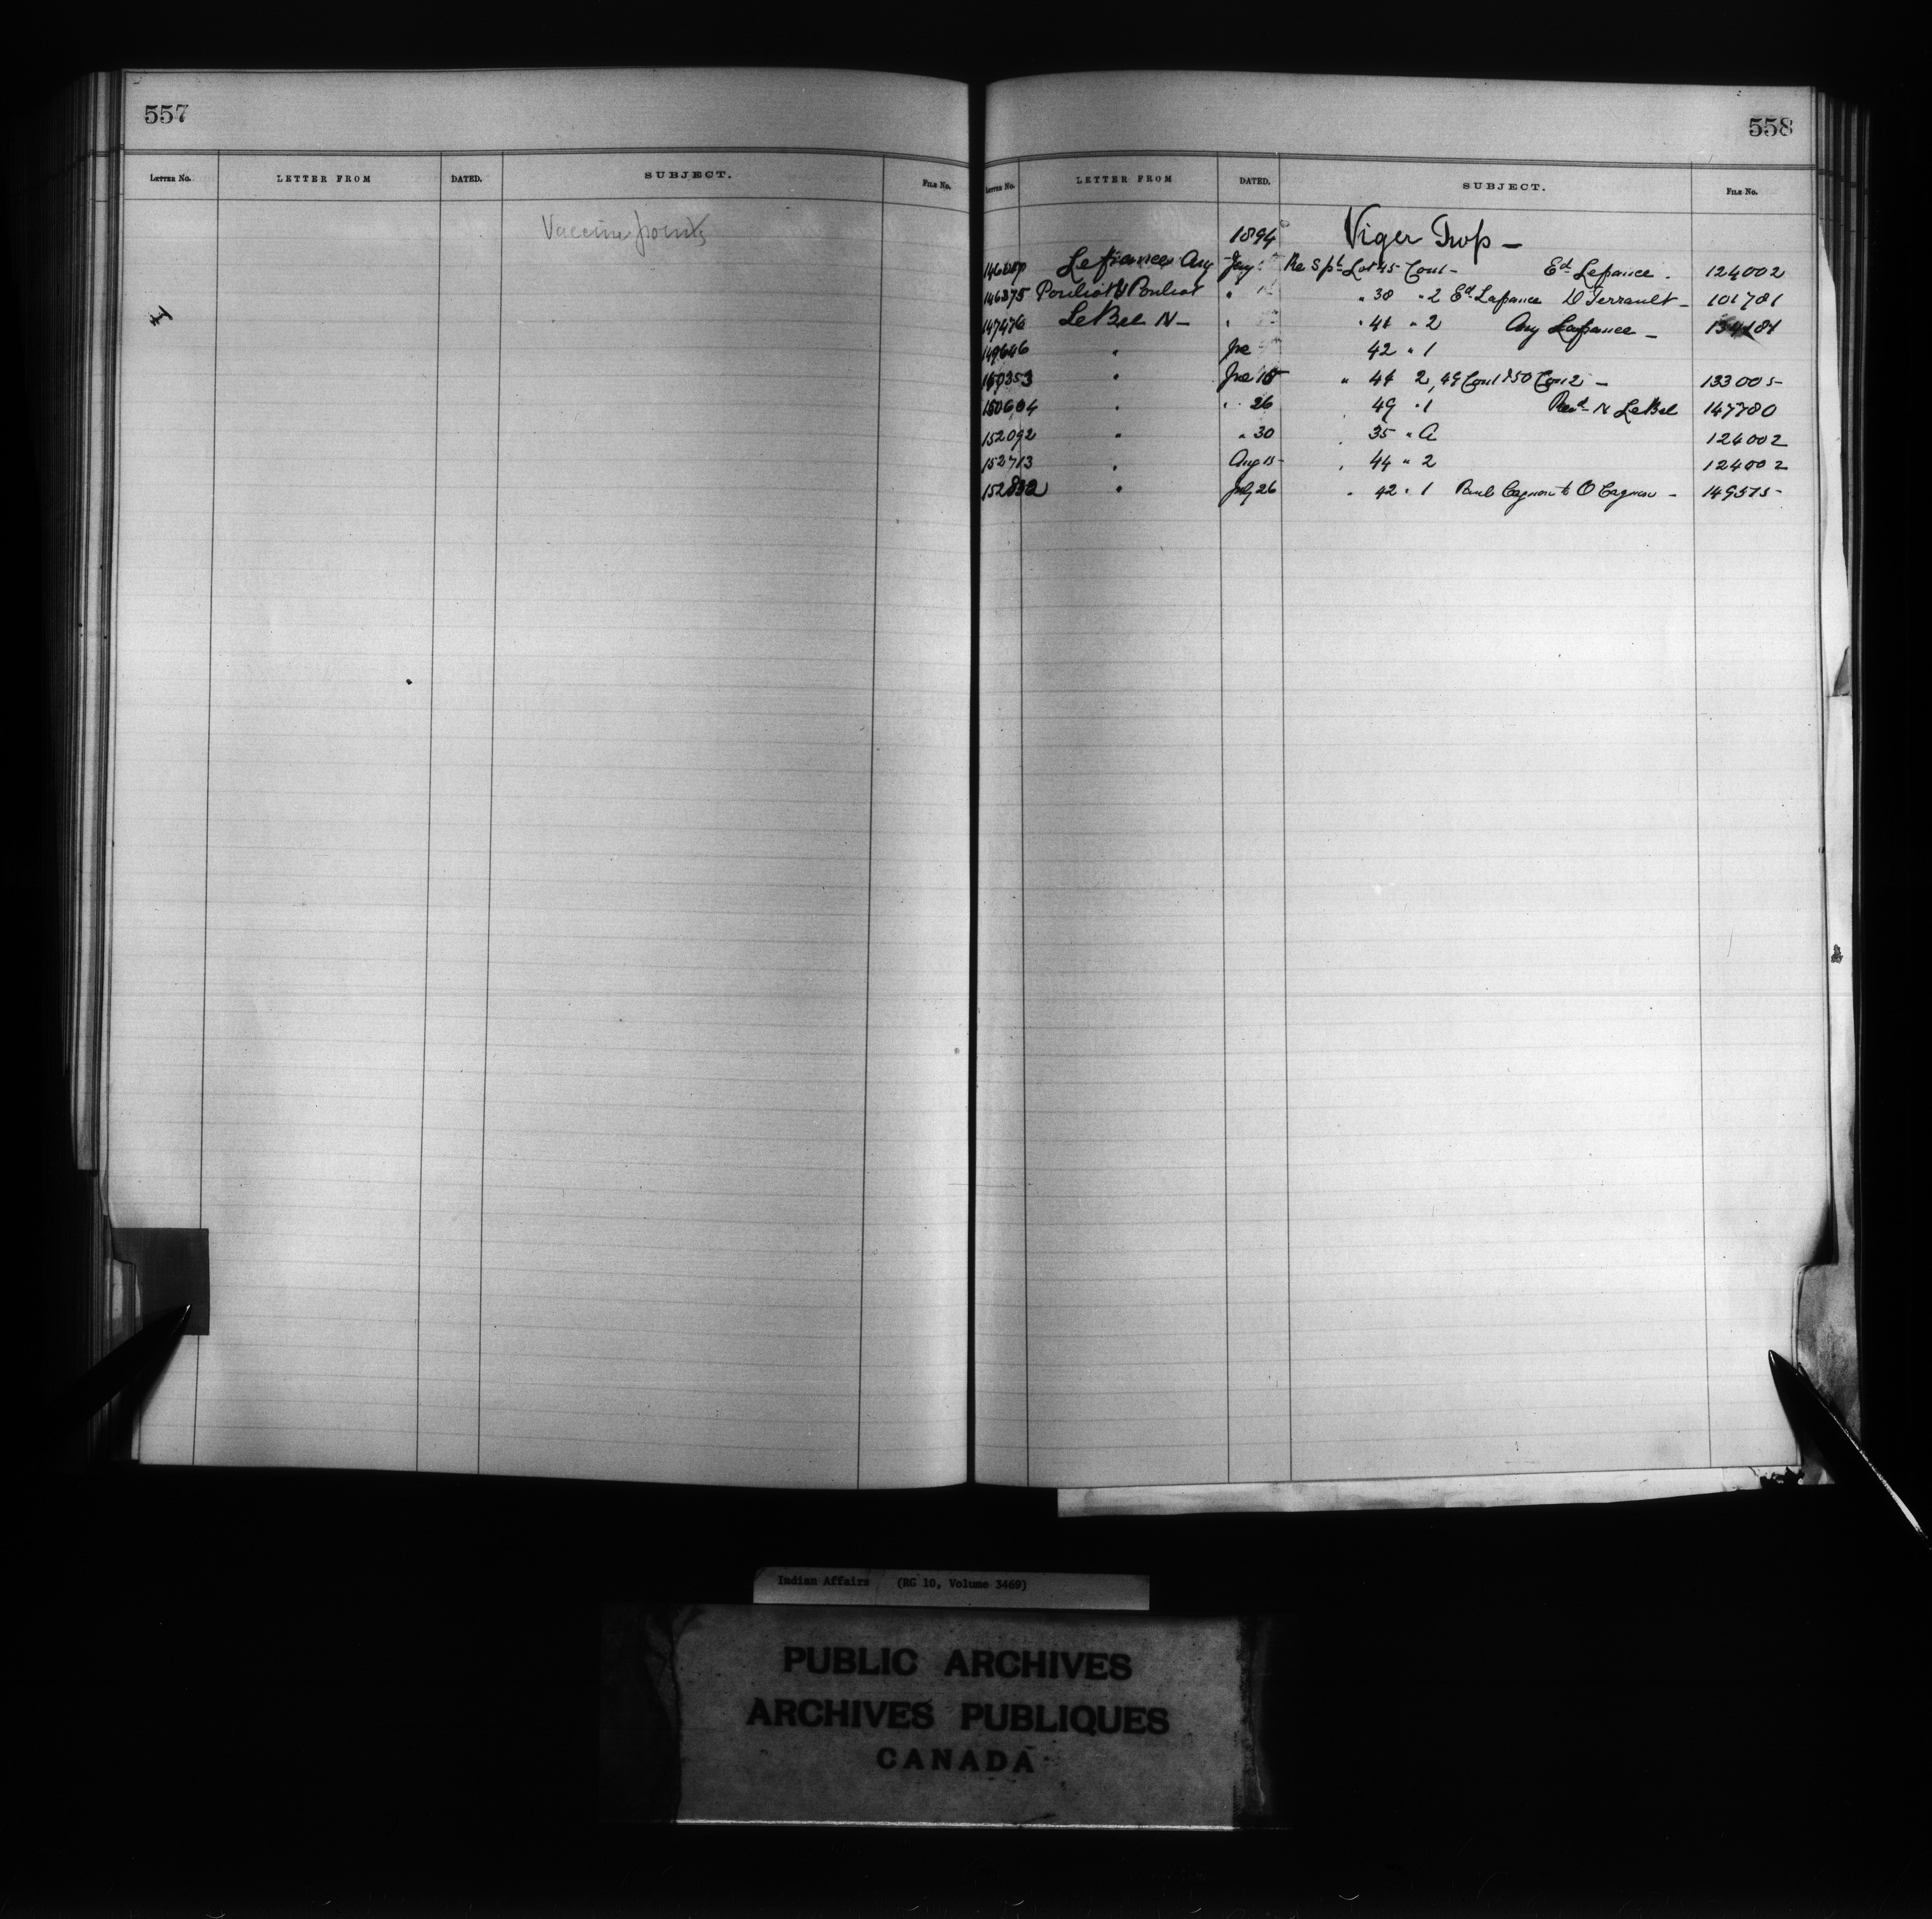 557
LETTER No. LETTER FROM DATED. SUBJECT. FILE No.
Vaccine points
558
LETTER No. LETTER FROM DATED. SUBJECT. FILE No.
1894 Viger Twp -
Lefrance Aug Jany Re Spl Lot 45 Con 1 - Ed. Lefrance - 124002
146375 Pouliot & Pouliot " " 38 " 2 Ed. Lafrance D Terrault - 101781
147476 LeBel N - " " 41 " 2 Aug Lafrance -
149646 " Jne 42 " 1
150353 " Jne 18 " 44 2, 49 Con 1 & 50 Con 2 - 133005
150604 " " 26 " 49 " 1 Revd. N LeBel 147780
152092 " " 30 " 35 " A 124002
152713 " Aug 15 " 44 " 2 124002
" July 26 " 42 " 1 Paul Gagnon to O Gagnon - 149575
Indian Affairs (RG 10, Volume 3469)
PUBLIC ARCHIVES
ARCHIVES PUBLIQUES
CANADA